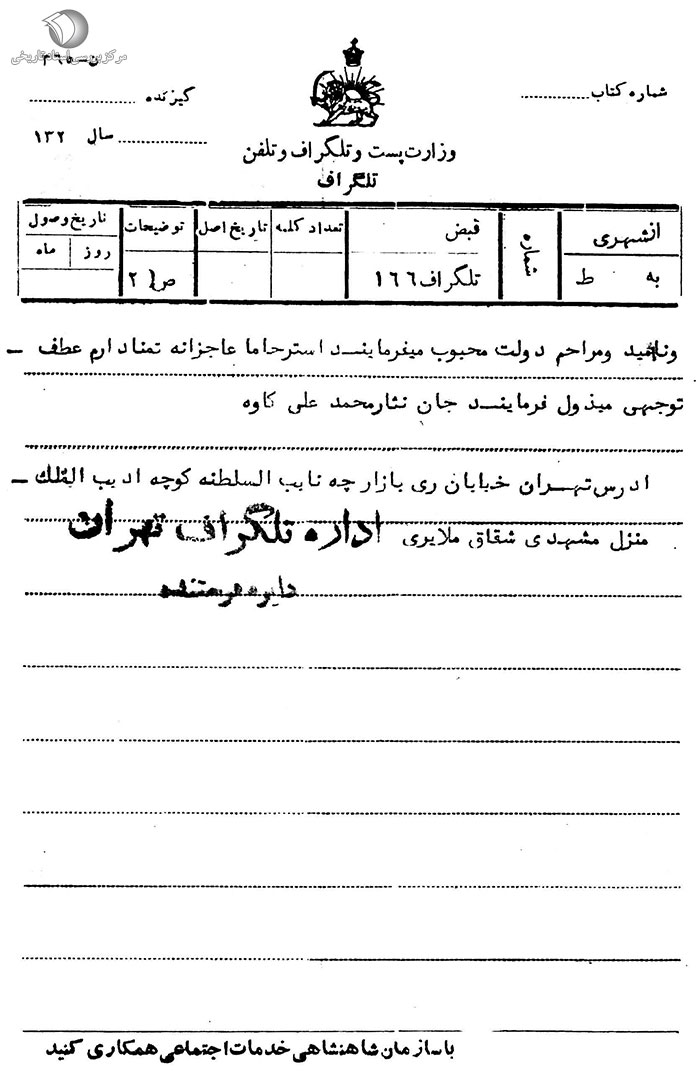 مرکز بررسی اسناد تاریخی
شماره کتاب
گیرنده
سال ۱۳۲
وزارت پست و تلگراف و تلفن
تلگراف
ازشهری
به ط
شماره
قبض
تلگراف ۱۶۶
تعداد کلمه
تاریخ اصل
توضیحات
ص ۲
تاریخ وصول
روز ماه
ومراحم دولت محبوب میفرماینـد استرحاما عاجزانه تمنادارم عطف _
توجهی مبذول فرماینـد جان نثارمحمد علی کاوه
ادرس تهـران خیابان ری بازارچه نایب السلطنه کوچه ادیب الملك _
منزل مشهدی شقاق ملایری اداره تلگراف تهران
دایره
با سازمان شاهنشاهی خدمات اجتماعی همکاری کنید